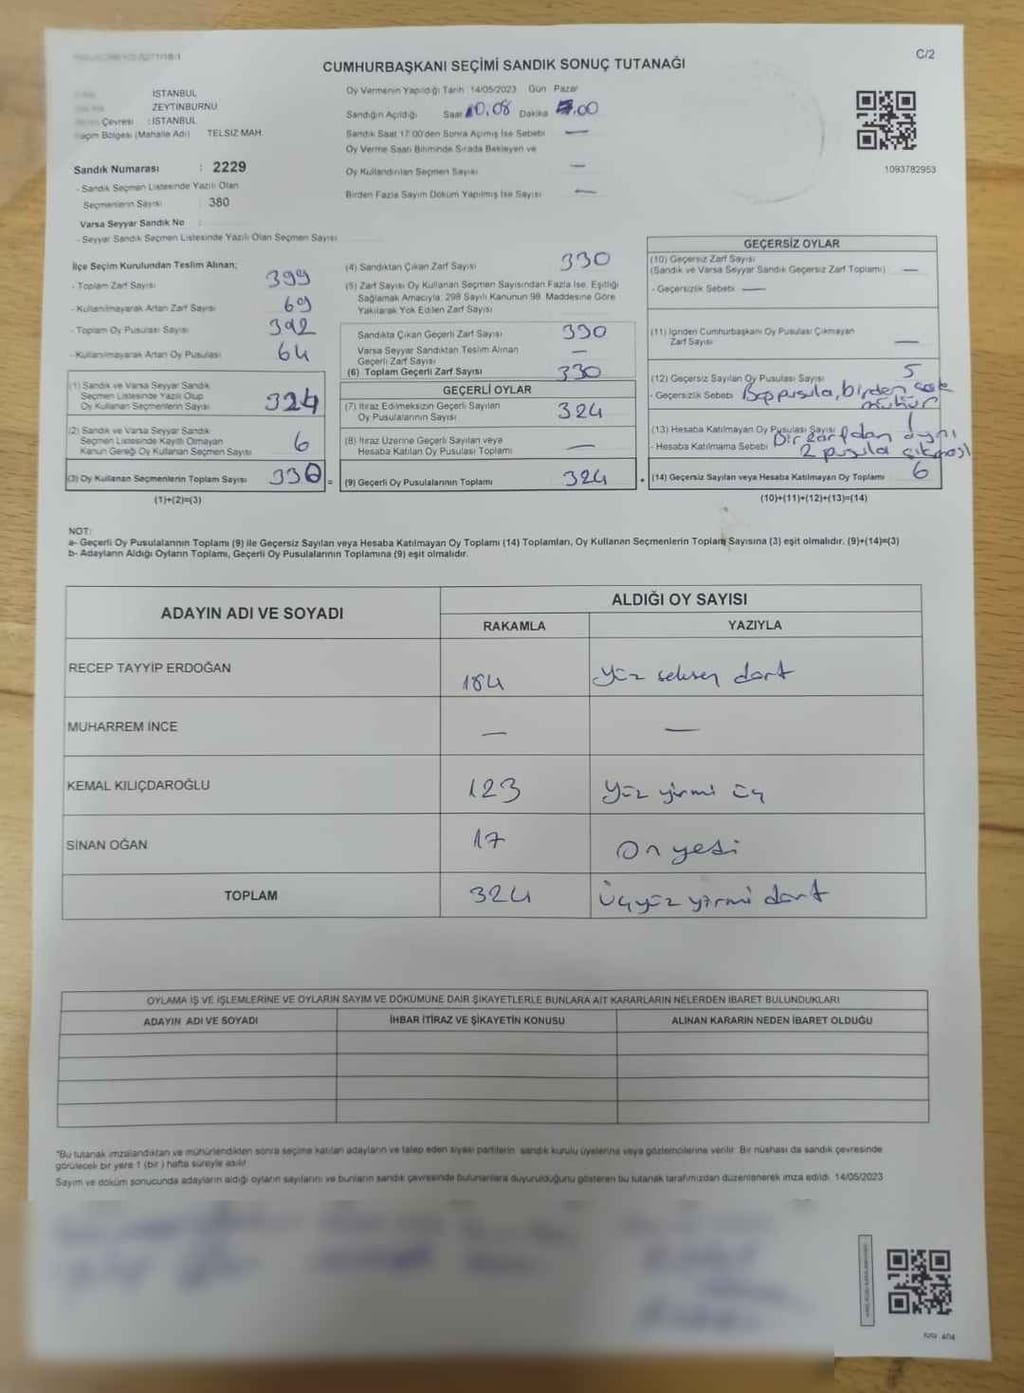 C/2
CUMHURBAŞKANI SEÇİMİ SANDIK SONUÇ TUTANAĞI
İSTANBUL
ZEYTİNBURNU
Çevresi : İSTANBUL
Bölgesi (Mahalle Adı) TELSİZ MAH.
Sandık Numarası : 2229
- Sandık Seçmen Listesinde Yazılı Olan
Seçmenlerin Sayısı 380
Varsa Seyyar Sandık No :
- Seyyar Sandık Seçmen Listesinde Yazılı Olan Seçmen Sayısı
Oy Vermenin Yapıldığı Tarih 14/05/2023 Gün Pazar
Sandığın Açıldığı Saat Dakika
Sandık Saat 17:00'den Sonra Açımış İse Sebebi —
Oy Verme Saati Bitiminde Sırada Bekleyen ve
Oy Kullandırılan Seçmen Sayısı —
Birden Fazla Sayım Döküm Yapılmış İse Sayısı —
1093782953
İlçe Seçim Kurulundan Teslim Alınan;
- Toplam Zarf Sayısı 399
- Kullanılmayarak Artan Zarf Sayısı 69
- Toplam Oy Pusulası Sayısı 392
- Kullanılmayarak Artan Oy Pusulası 64
(1) Sandık ve Varsa Seyyar Sandık
Seçmen Listesinde Yazılı Olup
Oy Kullanan Seçmenlerin Sayısı 324
(2) Sandık ve Varsa Seyyar Sandık
Seçmen Listesinde Kayıtlı Olmayan
Kanun Gereği Oy Kullanan Seçmen Sayısı 6
(3) Oy Kullanan Seçmenlerin Toplam Sayısı 330 =
(1)+(2)=(3)
(4) Sandıktan Çıkan Zarf Sayısı 330
(5) Zarf Sayısı Oy Kullanan Seçmen Sayısından Fazla İse, Eşitliği
Sağlamak Amacıyla, 298 Sayılı Kanunun 98. Maddesine Göre
Yakılarak Yok Edilen Zarf Sayısı
Sandıkta Çıkan Geçerli Zarf Sayısı 330
Varsa Seyyar Sandıktan Teslim Alınan
Geçerli Zarf Sayısı —
(6) Toplam Geçerli Zarf Sayısı 330
GEÇERLİ OYLAR
(7) İtiraz Edilmeksizin Geçerli Sayılan
Oy Pusulalarının Sayısı 324
(8) İtiraz Üzerine Geçerli Sayılan veya
Hesaba Katılan Oy Pusulası Toplamı —
(9) Geçerli Oy Pusulalarının Toplamı 324
GEÇERSİZ OYLAR
(10) Geçersiz Zarf Sayısı
(Sandık ve Varsa Seyyar Sandık Geçersiz Zarf Toplamı) —
- Geçersizlik Sebebi —
(11) İçinden Cumhurbaşkanı Oy Pusulası Çıkmayan
Zarf Sayısı —
(12) Geçersiz Sayılan Oy Pusulası Sayısı 5
- Geçersizlik Sebebi Boş pusula, birden çok
mühür
(13) Hesaba Katılmayan Oy Pusulası Sayısı 1
- Hesaba Katılmama Sebebi Bir zarfdan aynı
2 pusula çıkması
(14) Geçersiz Sayılan veya Hesaba Katılmayan Oy Toplamı 6
(10)+(11)+(12)+(13)=(14)
NOT:
a- Geçerli Oy Pusulalarının Toplamı (9) ile Geçersiz Sayılan veya Hesaba Katılmayan Oy Toplamı (14) Toplamları, Oy Kullanan Seçmenlerin Toplam Sayısına (3) eşit olmalıdır. (9)+(14)=(3)
b- Adayların Aldığı Oyların Toplamı, Geçerli Oy Pusulalarının Toplamına (9) eşit olmalıdır.
ADAYIN ADI VE SOYADI ALDIĞI OY SAYISI
RAKAMLA YAZIYLA
RECEP TAYYİP ERDOĞAN 184 Yüz seksen dört
MUHARREM İNCE — —
KEMAL KILIÇDAROĞLU 123 Yüz yirmi üç
SİNAN OĞAN 17 On yedi
TOPLAM 324 Üçyüz yirmi dört
OYLAMA İŞ VE İŞLEMLERİNE VE OYLARIN SAYIM VE DÖKÜMÜNE DAİR ŞİKAYETLERLE BUNLARA AİT KARARLARIN NELERDEN İBARET BULUNDUKLARI
ADAYIN ADI VE SOYADI İHBAR İTİRAZ VE ŞİKAYETİN KONUSU ALINAN KARARIN NEDEN İBARET OLDUĞU
*Bu tutanak imzalandıktan ve mühürlendikten sonra seçime katılan adayların ve talep eden siyasi partilerin sandık kurulu üyelerine veya gözlemcilerine verilir. Bir nüshası da sandık çevresinde
görülecek bir yere 1 (bir) hafta süreyle asılır.
Sayım ve döküm sonucunda adayların aldığı oyların sayılarını ve bunların sandık çevresinde bulunanlara duyurulduğunu gösteren bu tutanak tarafımızdan düzenlenerek imza edildi. 14/05/2023